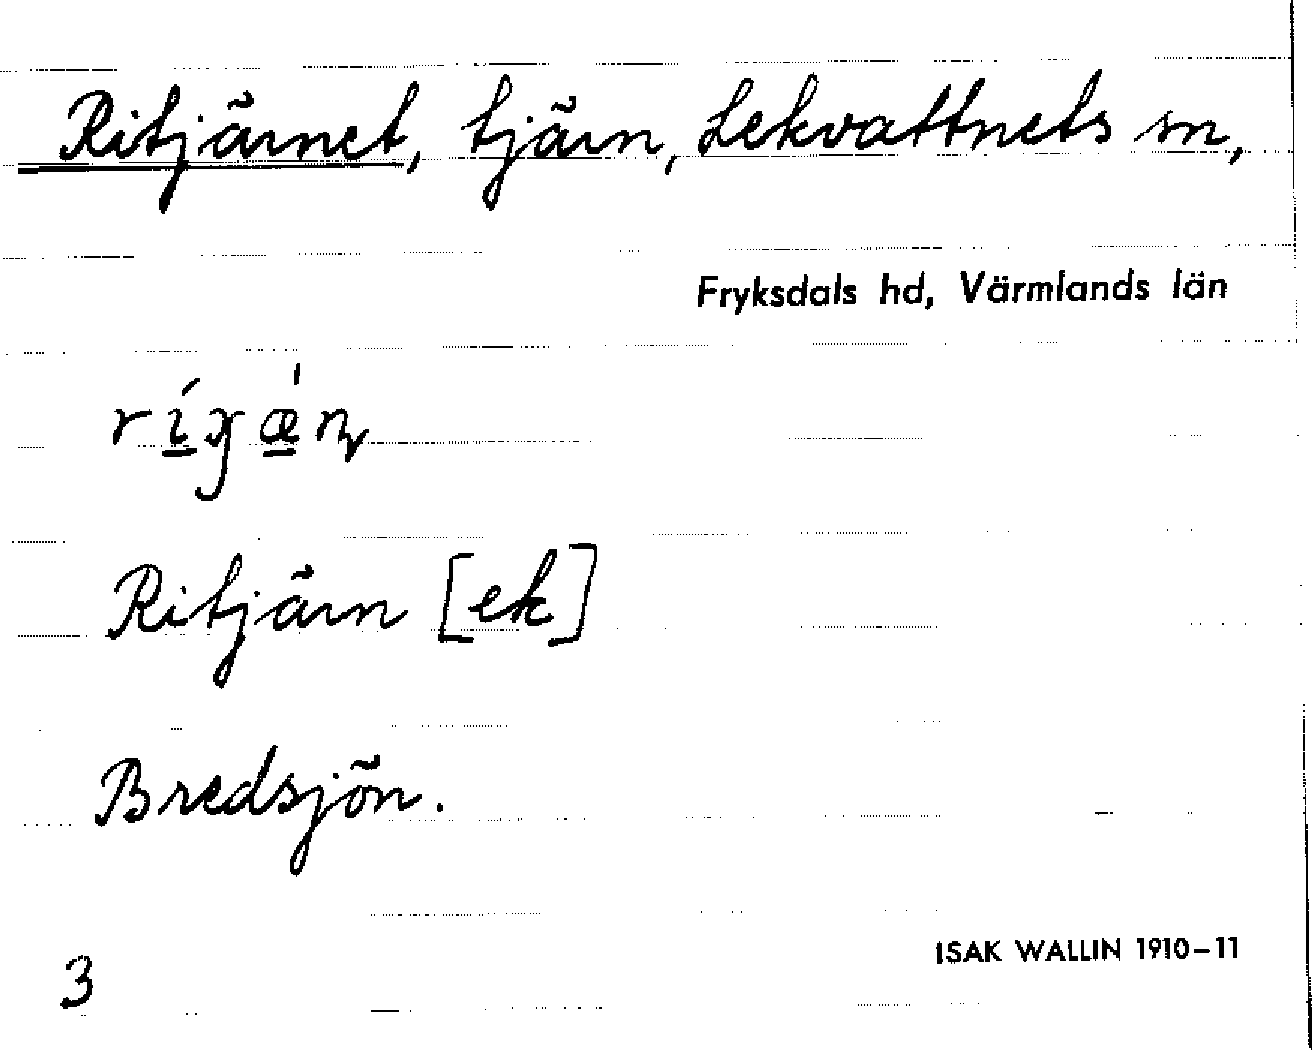 Ritjärnet, tjärn, Lekvattnets sn,
Fryksdals hd, Värmlands län
Ritjärn [ek]
Bredsjön.
ISAK WALLIN 1910–11
3